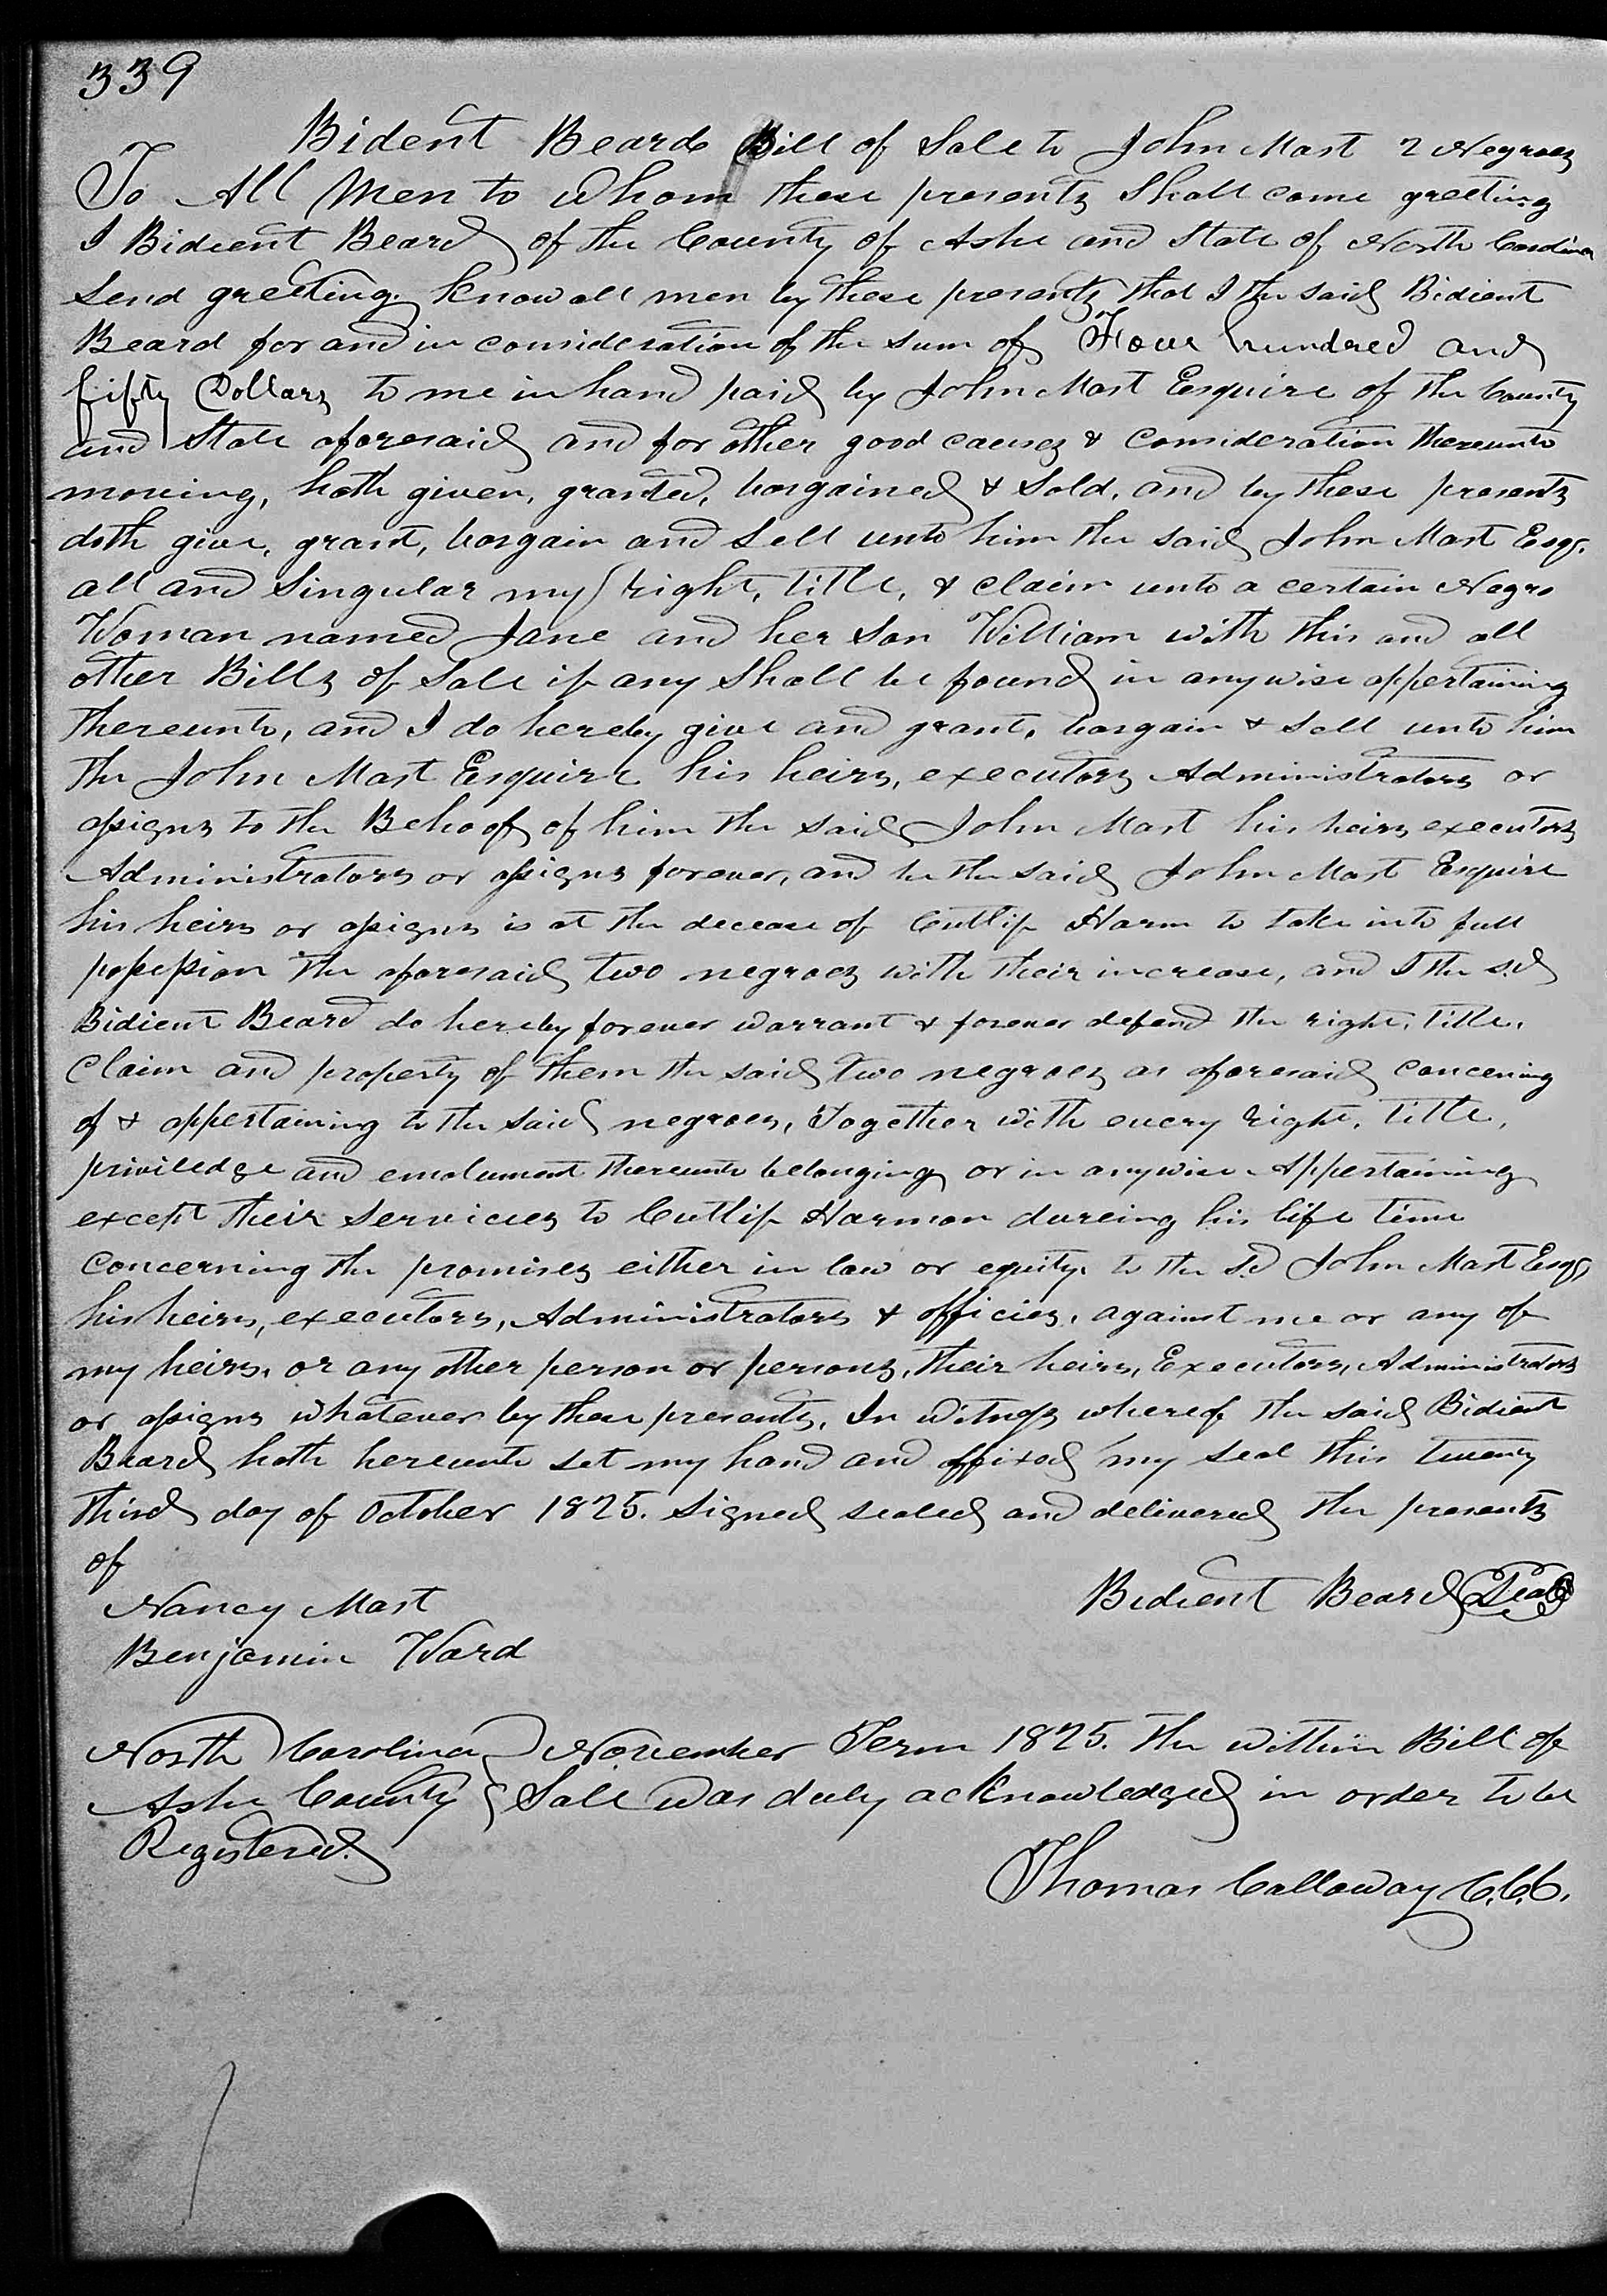 339
Bident Beards Bill of Sale to John Mast 2 Negroes
To All Men to whom these presents Shall come greeting
I Bidient Beard of the County of Ashe and State of North Carolina
Send greeting. Know all men by these presents that I the said Bidient
Beard for and in consideration of the sum of Four hundred and
fifty Dollars to me in hand paid by John Mast Esquire of the County
and State aforesaid and for other good causes & Consideration thereunto
moving, hath given, granted, bargained & Sold, and by these presents
doth give, grant, bargain and Sell unto him the said John Mast Esqr.
all and Singular my right, title, & Claim unto a certain Negro
Woman named Jane and her Son William with this and all
other Bills of Sale if any Shall be found in anywise appertaining
thereunto, and I do hereby give and grant, bargain & Sell unto him
the John Mast Esquire his heirs, executors Administrators or
assigns to the Behoof of him the said John Mast his heirs executors
Administrators or assigns forever, and he the said John Mast Esquire
his heirs or assigns is at the decease of Cutlip Harm to take into full
possession the aforesaid two negroes with their increase, and I the sd
Bidient Beard do hereby forever warrant & forever defend the right, title,
Claim and property of them the said two negroes as aforesaid concerning
of & appertaining to the said negroes, Together with every right, title,
priviledge and emolument thereunto belonging or in anywise Appertaining
except their Services to Cutlip Harmon dureing his life time
Concerning the promises either in law or equity. to the Sd John Mast Esqr
his heirs, executors, Administrators & officies, against me or any of
my heirs, or any other person or persons, their heirs, Executors, Administrators
or assigns whatever by these presents, In Witness whereof the said Bidient
Beard hath hereunto set my hand and affixed my seal this twenty
third day of October 1825. Signed sealed and delivered the presents
of
Nancy Mast
Bedient Beard Seal
Benjamin Ward
North Carolina November Term 1825. The within Bill of
Ashe County Sale was duly acknowledged in order to be
Registered.
Thomas Calloway C.C.C.